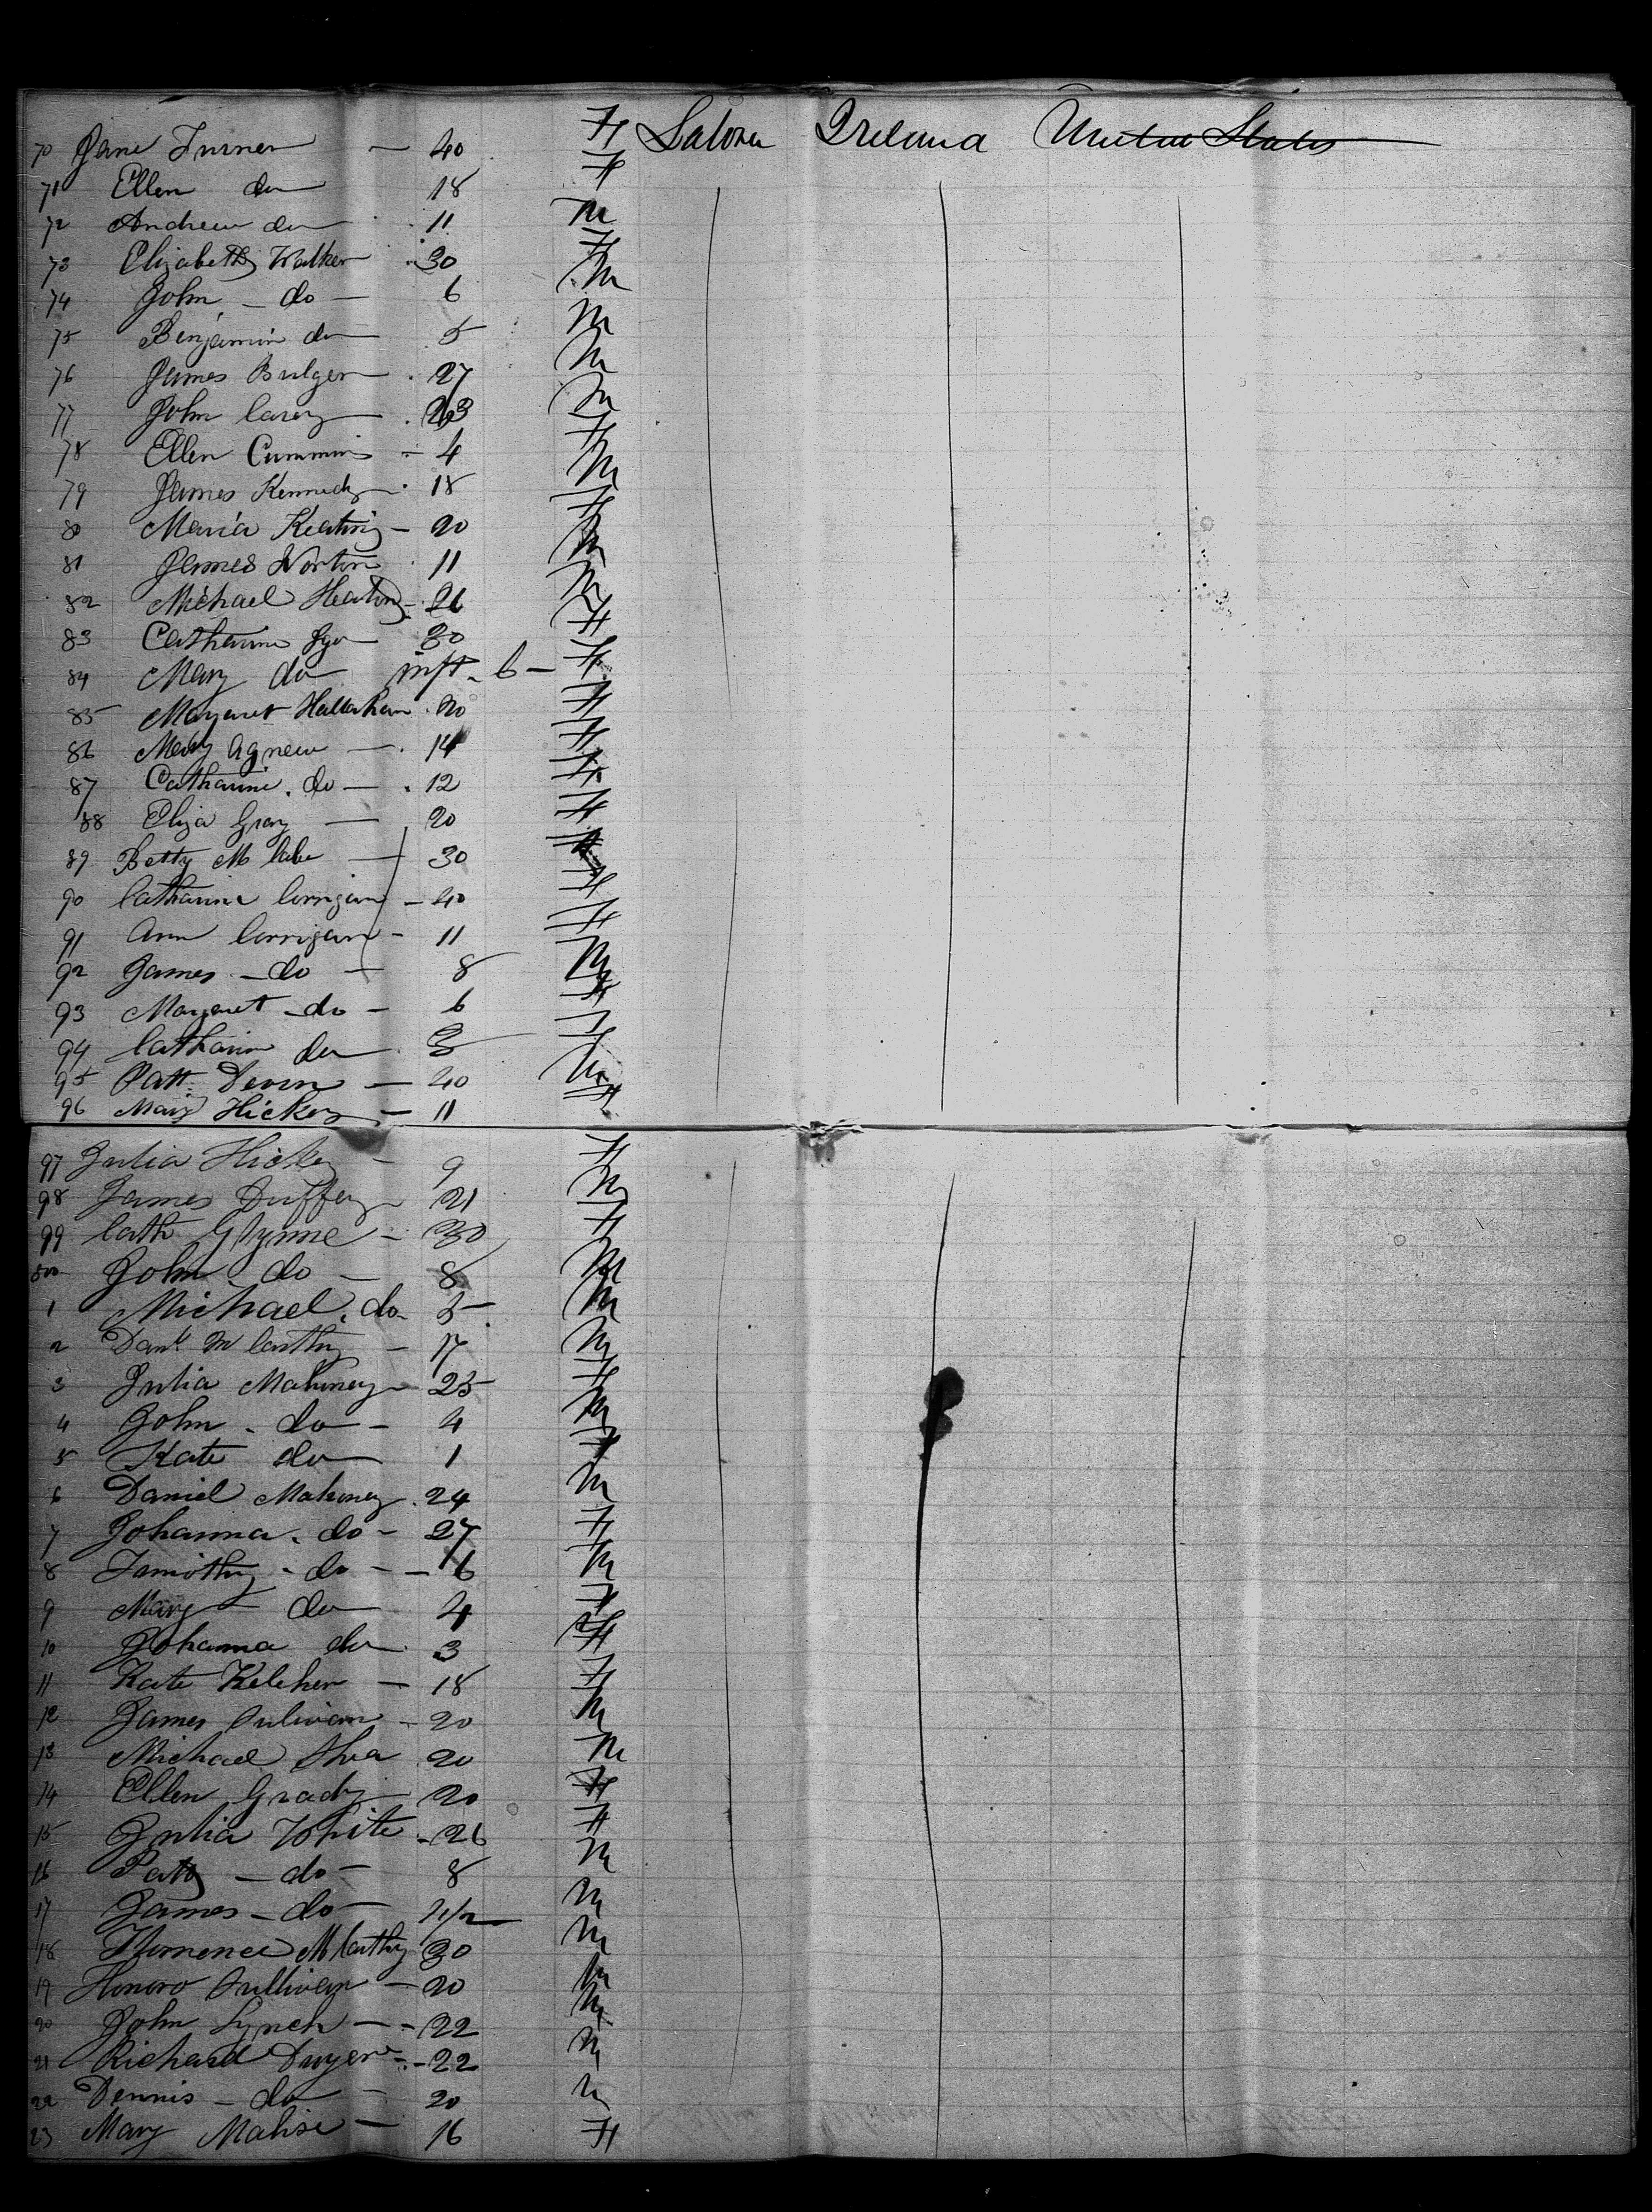 70 Jane Turner — 40 F Labor Ireland United States
71 Ellen do 18 F
72 Andrew do 11 M
73 Elizabeth Walker 30 F
74 John — do — 6 M
75 Benjamin do 5 M
76 James Bulger 27 M
77 John Carey 23 M
78 Ellen Cummins - 4 F
79 James Kennedy 18 M
80 Maria Keating - 20 F
81 James Norton 11 M
82 Michael 26 M
83 Catharine 30 F
84 Mary do inft. 6 — F
85 Margaret Hallahan 20 F
86 Mary Agnew — 14 F
87 Catharine do — 12 F
88 Eliza Gray — 20 F
89 Betty McCabe — 30 F
90 Catharine Corrigan - 40 F
91 Ann Corrigan - 11 F
92 James — do — 8 M
93 Margaret - do - 6 F
94 Catharine do 3 F
95 Patt. Devin — 40 M
96 Mary Hickey — 11 F
97 Julia Hickey - 9 F
98 James Duffey 21 M
99 Cath Glynne - 30 F
800 John do — 8 M
1 Michael do 5 M
2 Danl. McCarthy - 17 M
3 Julia Mahoney - 25 F
4 John - do - 4 M
5 Kate do 1 F
6 Daniel Mahoney 24 M
7 Johanna do - 27 F
8 Timothy - do - 6 M
9 Mary - do 4 F
10 Johanna do 3 F
11 Kate Keleher - 18 F
12 James Sulivan - 20 M
13 Michael Shea 20 M
14 Ellen Grady 20 F
15 Julia White - 26 F
16 Patt — do — 8 M
17 James - do — M
18 Florence McCarthy 30 M
19 Honoro Sullivan - 20 M
20 John Lynch — 22 M
21 Richard Dwyer - 22 M
22 Dennis — do — 20 M
23 Mary 16 F